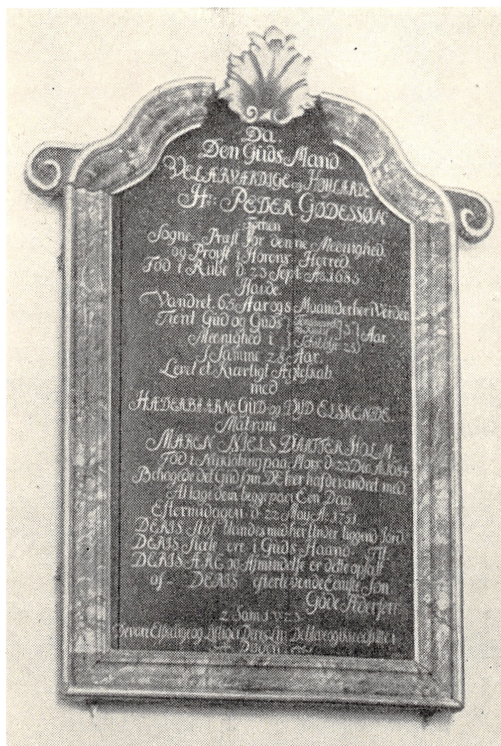 Da
Den Guds Mand
VELÆRVÆRDIGE og HÖYLÆRDE
Hr: PEDER GÖDESSÖN
Sogne-Præst for denne Meenighed
og Provst i Horens Herred
Föd i Ribe d 23 Sept Ao 1685
Hafde
Vandret 65 Aar og 8 Maaneder her i Verden
Tient Gud og Guds
Meenighed i Aar
J Samme 28 Aar
Levet et Kiærligt Ægteskab
med
HÆDERBAARNE GUD og DYD ELSKENDE
Matrone
MAREN NIELS DAATTER HOLM
Föd i Nykiöbing paa Mors d 23 Dec A 1684
Behagede det Gud som DE her hafde vandret med
At tage dem begge paa Een Dag
Eftermidagen d 22 May A. 1751
DERIS Stöf blandes med her under liggend Jord
DERIS Siæle ere i Guds Haand
DERIS ÆRE og Amindelse er dette opsatt
af DERIS efterlevende Eeniste Sön
Göde Pedersen
2 Sam 1 V 23